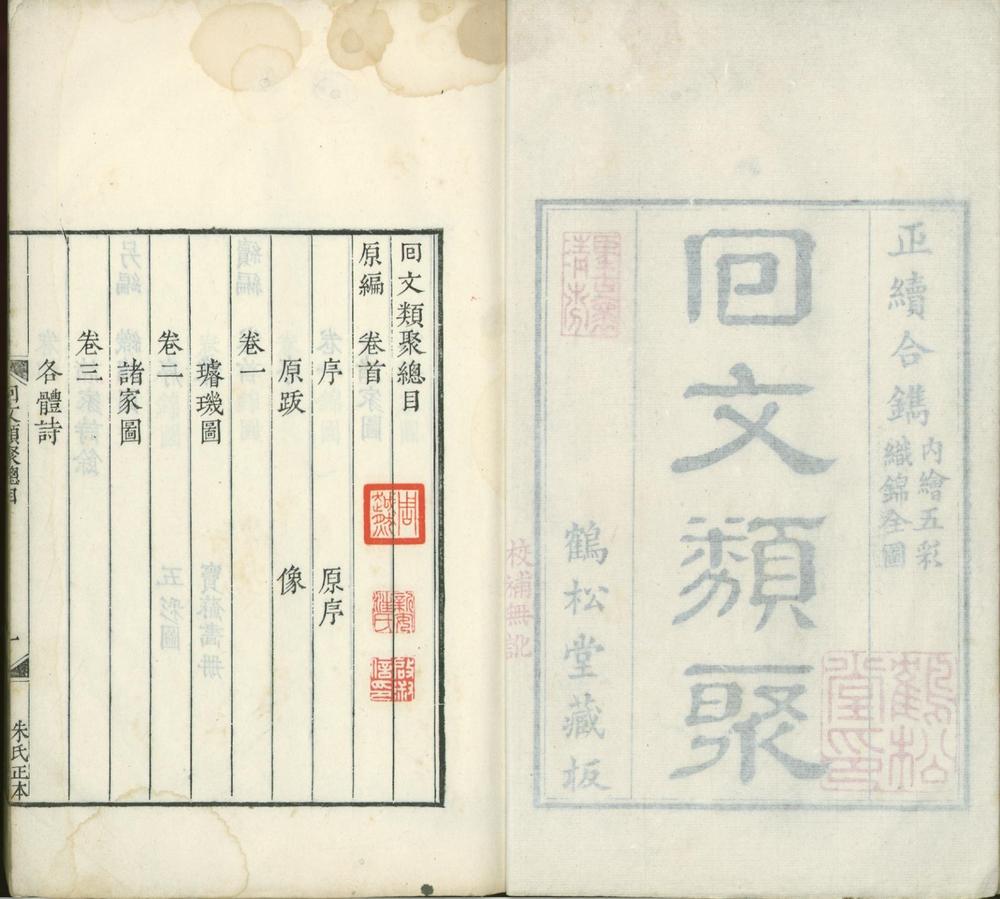 正續合鐫
內繪五彩
織錦全圖
回文類聚
鶴松堂藏板
鶴松堂印
校補無訛
回文類聚總目
原編 卷首
序 原序
原跋 像
卷一
璿璣圖
卷二
諸家圖
卷三
各體詩
回文類聚總目
一
朱氏正本